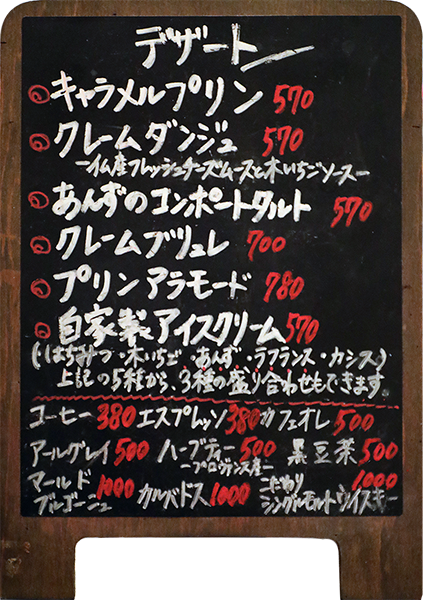 デザート
キャラメルプリン 570
クレームダンジュ 570
ー仏産フレッシュチーズムースと木いちごソースー
あんずのコンポートタルト 570
クレームブリュレ 700
プリンアラモード 780
自家製アイスクリーム 570
(・はちみつ・木いちご・あんず・ラフランス・カシス)
上記の5種から、3種の盛り合わせもできます。
コーヒー 380 エスプレッソ 380 カフェオレ 500
アールグレイ 500 ハーブティー 500 黒豆茶 500
ープロヴァンス産ー
マールド 1000 カルバドス 1000 こだわり 1000
ブルゴーニュ シングルモルトウイスキー